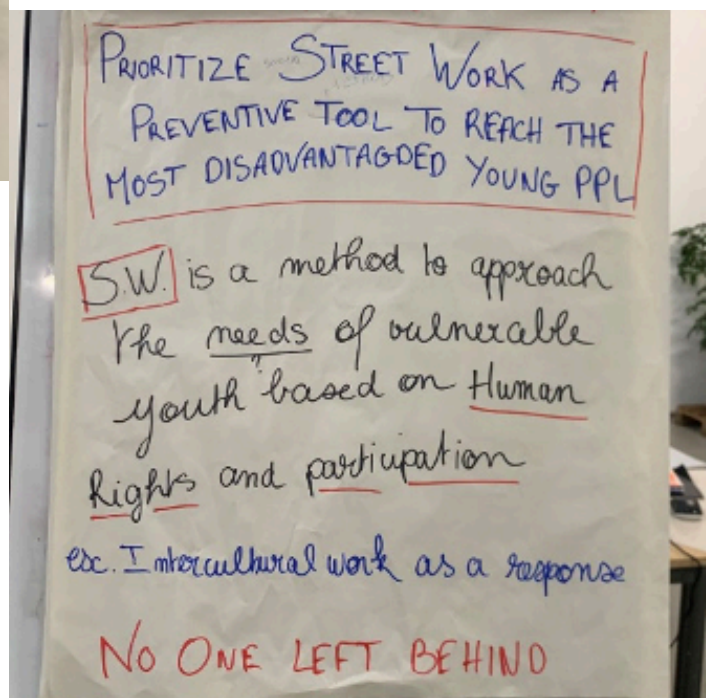 PRIORITIZE STREET WORK AS A
PREVENTIVE TOOL TO REACH THE
MOST DISADVANTAGDED YOUNG PPL
S.W. is a method to approach
the needs of vulnerable
youth based on Human
Rights and participation
esc. Intercultural work as a response
NO ONE LEFT BEHIND